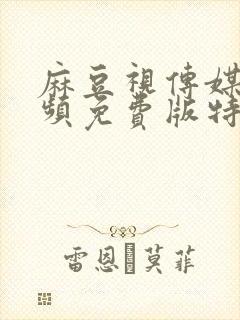 麻豆視傳媒
頻免費版特
雷恩·莫菲